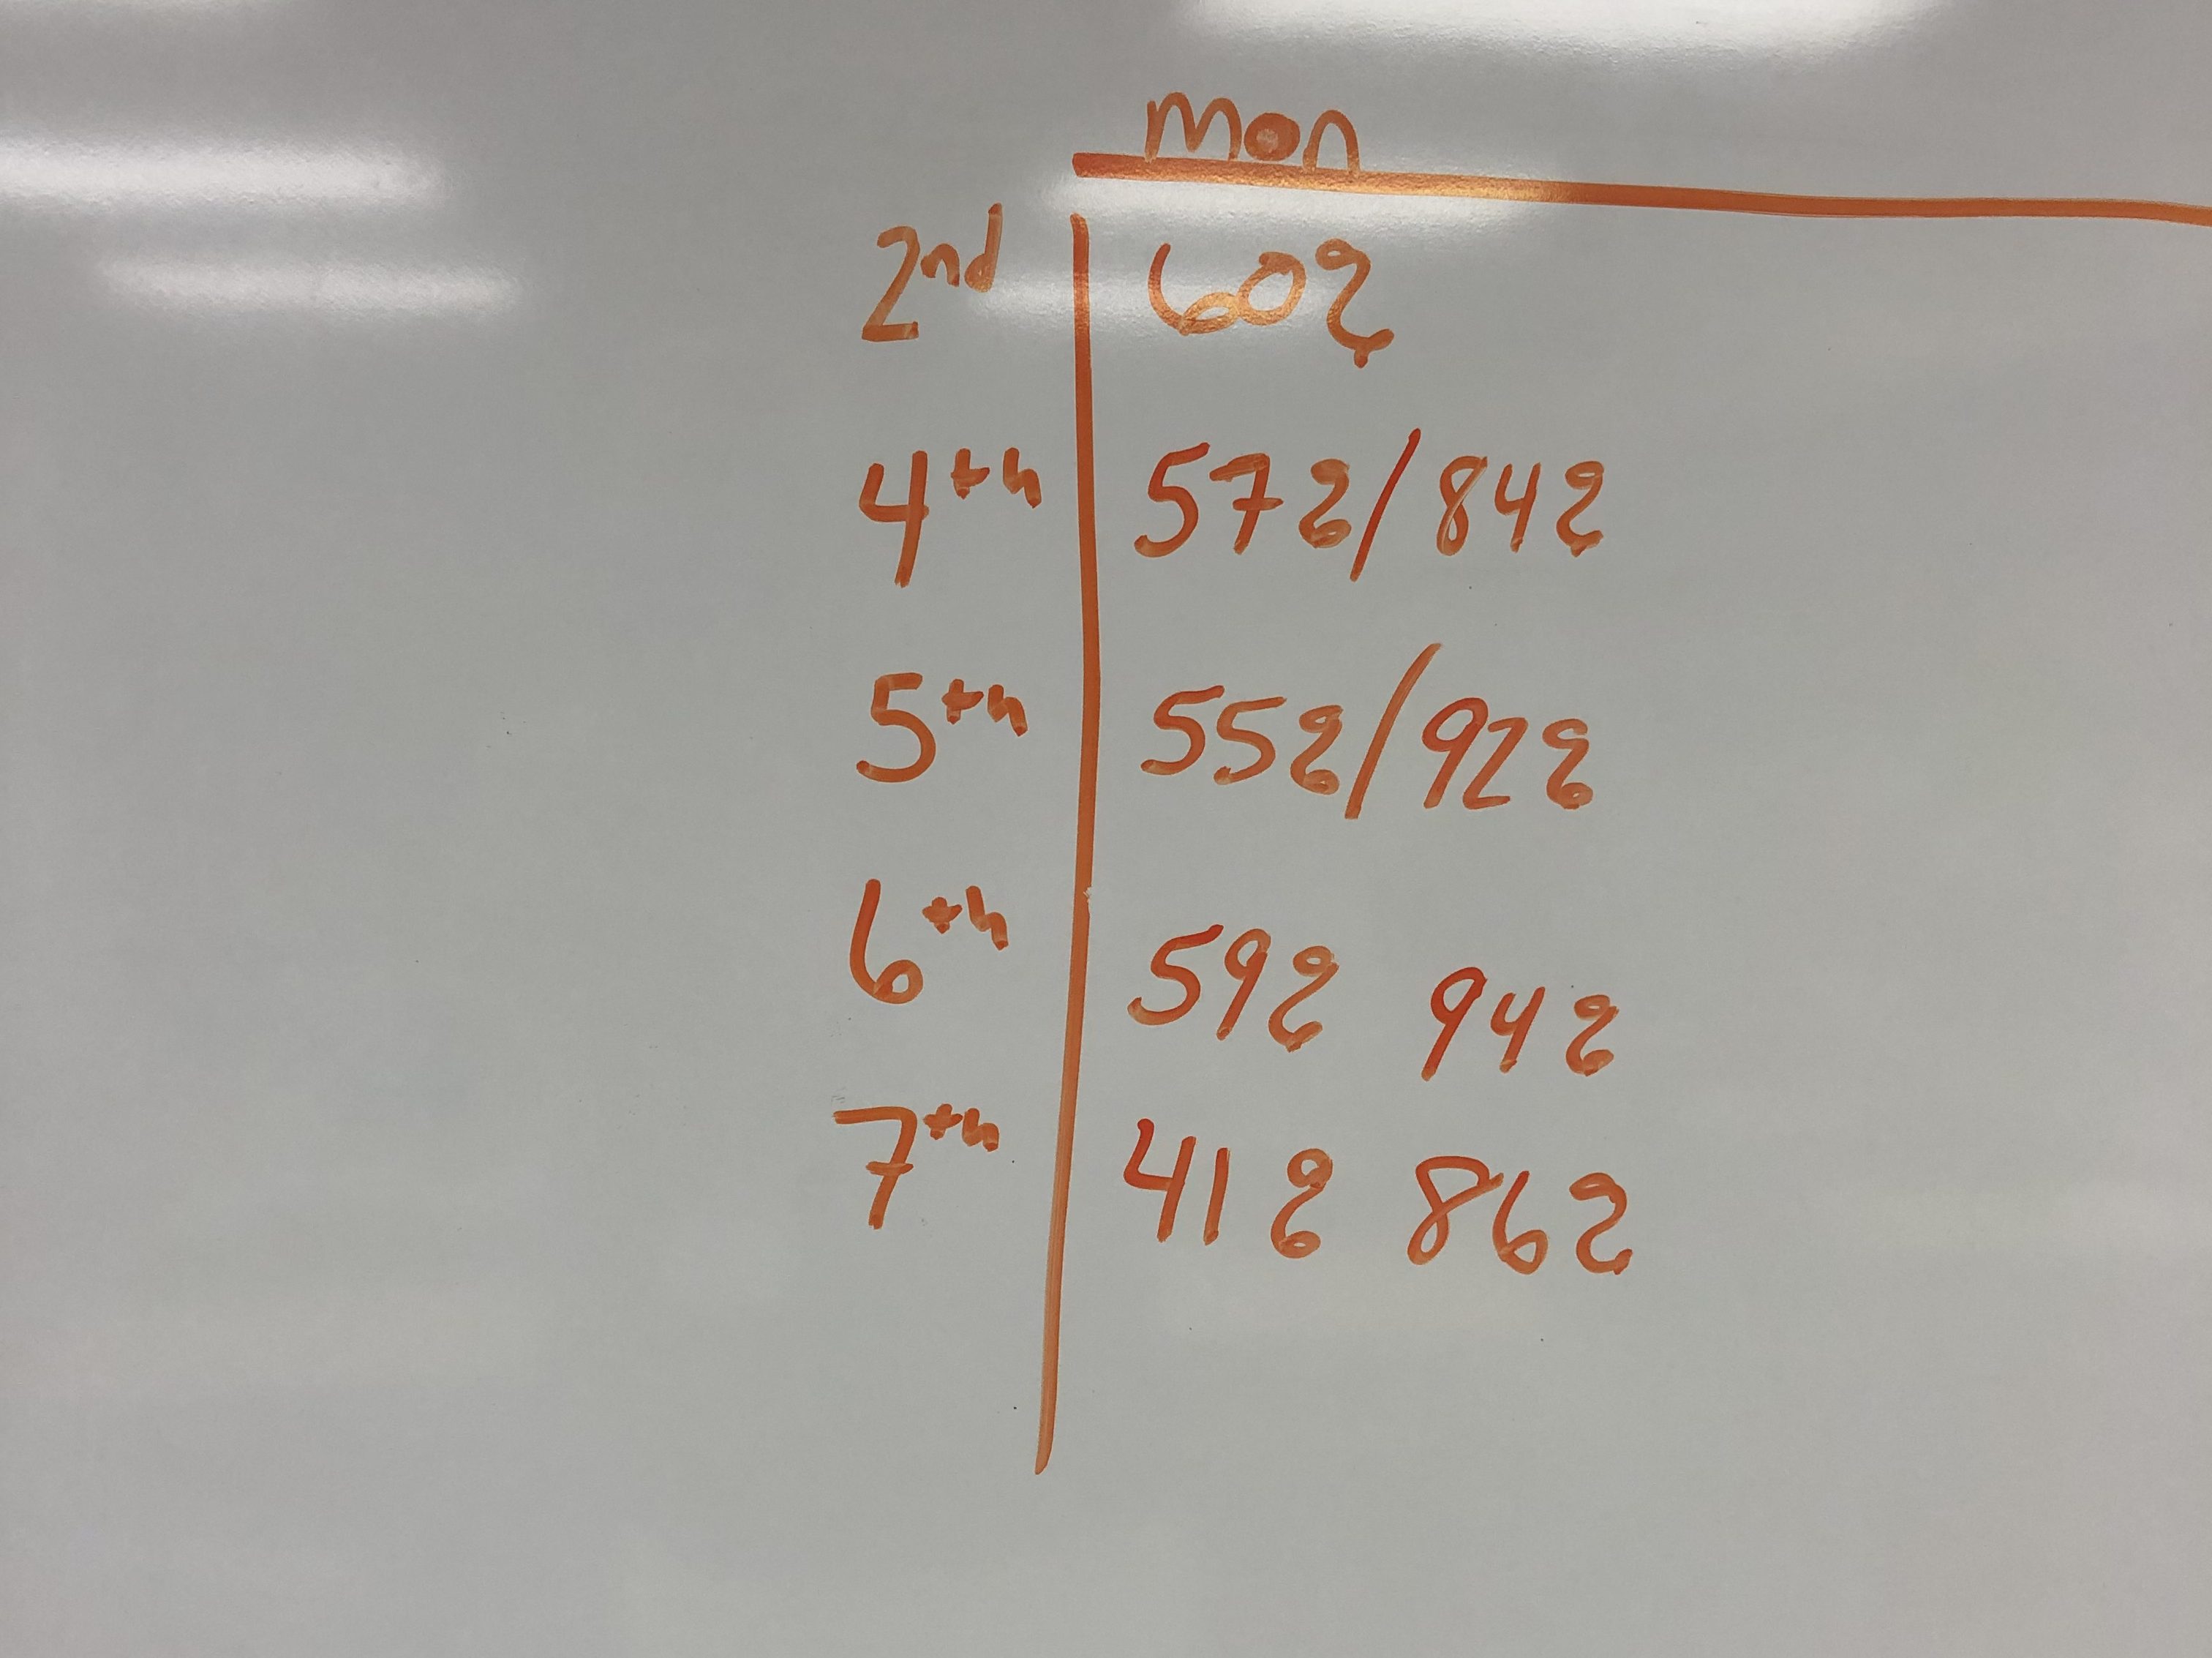 Mon
2nd 60g
4th 57g/84g
5th 55g/92g
6th 59g 94g
7th 41g 86g